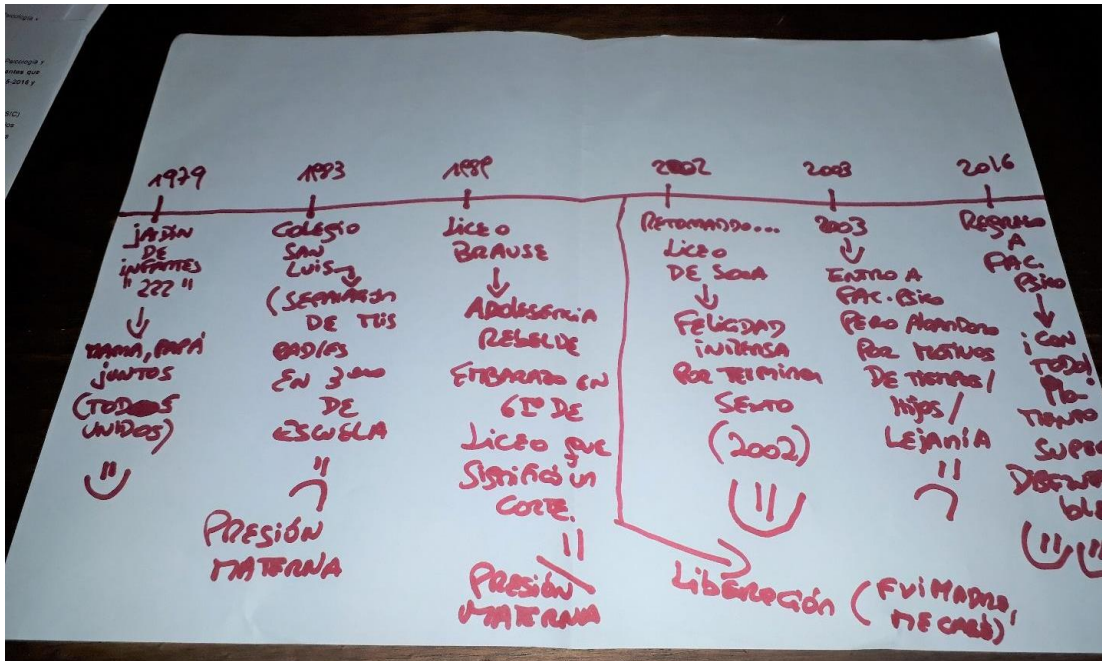 Psicología y
antes que
1979
1983
1989
2002
2003
2016
JARDÍN
DE
INFANTES
"222"
MAMÁ, PAPÁ
JUNTOS
(TODOS
UNIDOS)
COLEGIO
SAN
LUIS
(SEPARACIÓN
DE MIS
PADRES
EN 3ero
DE
ESCUELA
PRESIÓN
MATERNA
LICEO
BRAUSE
ADOLESCENCIA
REBELDE
EMBARAZO EN
6to DE
LICEO QUE
SIGNIFICÓ UN
CORTE.
PRESIÓN
MATERNA
RETOMANDO...
LICEO
DE SOCA
FELICIDAD
INTENSA
POR TERMINAR
SEXTO
(2002)
LIBERACIÓN (FUI MADRE,
ME CASÉ)
2003
ENTRO A
FAC. PSICO
PERO ABANDONO
POR MOTIVOS
DE TIEMPOS/
HIJOS/
LEJANÍA
REGRESO
A
FAC.
PSICO
¡CON
TODO!
TIEMPO